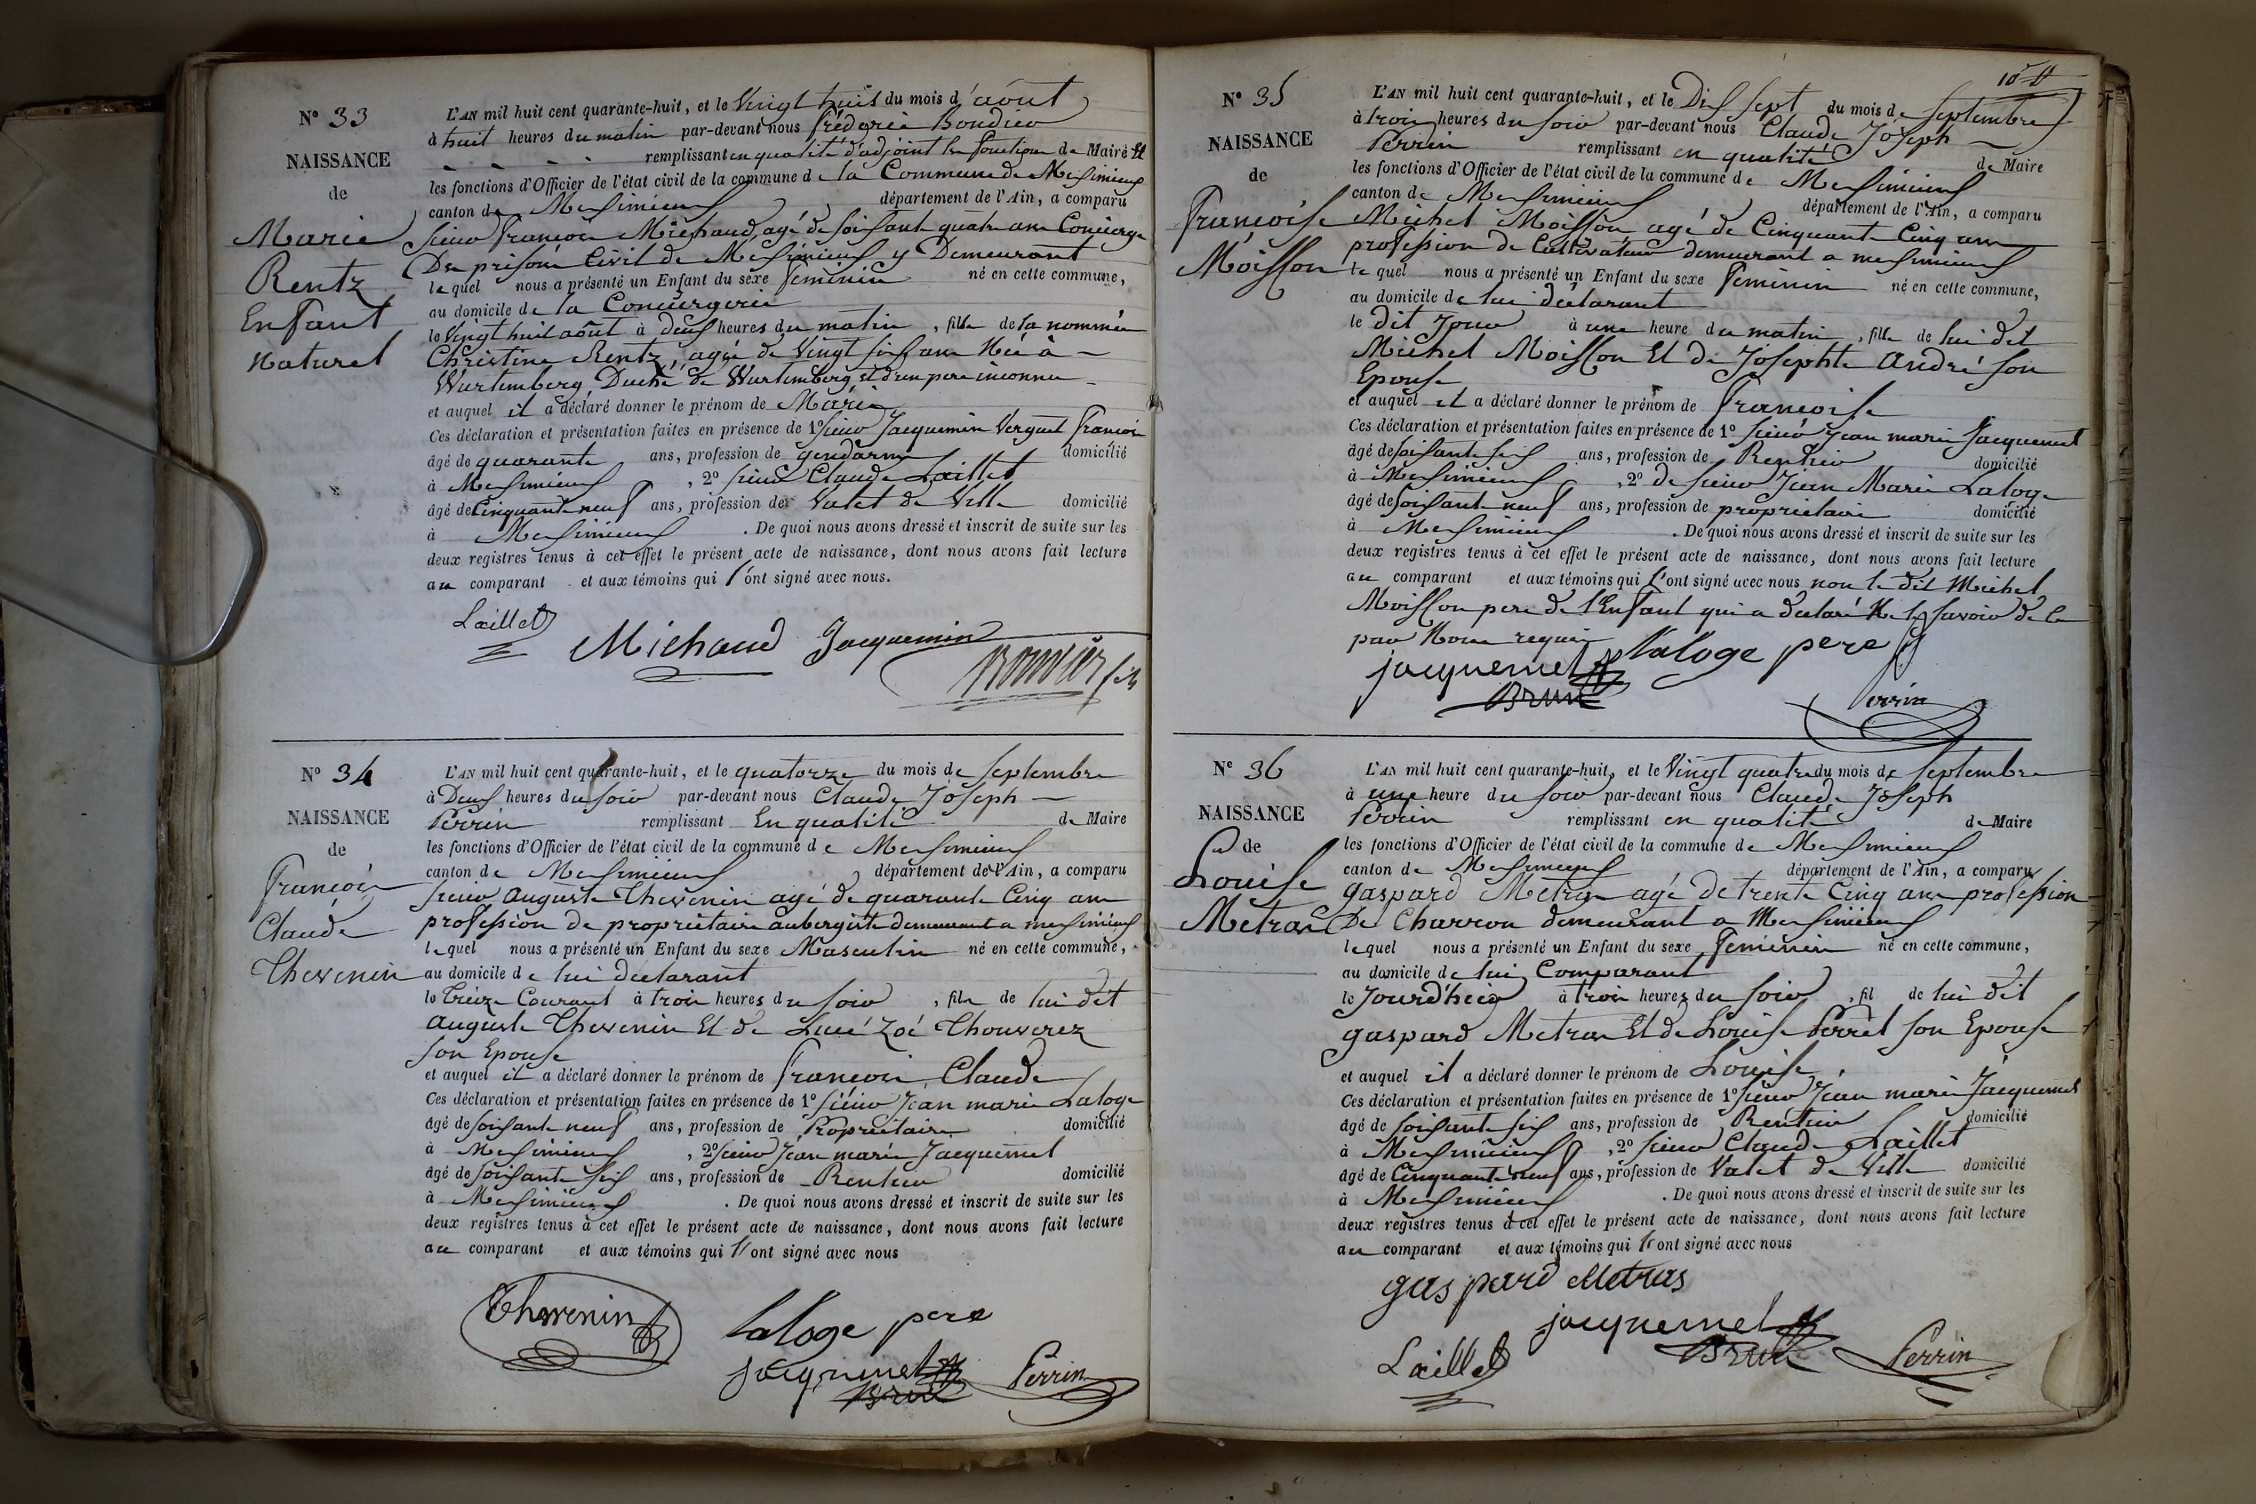 N° 33
NAISSANCE
de
Marie
Rentz
Enfant
Naturel
L'AN mil huit cent quarante-huit, et le Vingt huit du mois d'août
à huit heures du matin par-devant nous frédéric
remplissant en qualité d'adjoint les fonctions de Maire Et
les fonctions d'Officier de l'état civil de la commune de la Commune de Meximieux
canton de Meximieux département de l'Ain, a comparu
sieur françois Michaud, agé de soixante quatre ans Concierge
Des prisons Civil de Méximieux y Demeurant
lequel nous a présenté un Enfant du sexe feminin né en cette commune,
au domicile de la Conciergerie
le Vingt huit août à deux heures du matin, fille de la nommée
Christine Rentz, agée de Vingt six ans Née à
Wurtemberg, Duché de Wurtemberg, et d'un pere inconnu
et auquel il a déclaré donner le prénom de Marie
Ces déclaration et présentation faites en présence de 1° sieur Jacquemin françois
âgé de quarante ans, profession de gendarme domicilié
à Meximieux, 2° sieur Claude Laillet
âgé de Cinquante neuf ans, profession de Valet de Ville domicilié
à Meximieux. De quoi nous avons dressé et inscrit de suite sur les
deux registres tenus à cet effet le présent acte de naissance, dont nous avons fait lecture
au comparant et aux témoins qui l'ont signé avec nous.
Laillet
Michaud Jacquemin
N° 34
NAISSANCE
de
françois
Claude
Thevenin
L'AN mil huit cent quarante-huit, et le quatorze du mois de septembre
à Deux heures du soir par-devant nous Claude Joseph
Perrin remplissant En qualité de Maire
les fonctions d'Officier de l'état civil de la commune de Meximieux
canton de Meximieux département de l'Ain, a comparu
sieur auguste Thevenin agé de quarante Cinq ans
profession de propriétaire aubergiste demeurant a meximieux
lequel nous a présenté un Enfant du sexe Masculin né en cette commune,
au domicile de lui déclarant
le treize Courant à trois heures du soir, fils de lui dit
auguste Thevenin Et de Lucé Zoé Thouverez
son Epouse
et auquel il a déclaré donner le prénom de françois, Claude
Ces déclaration et présentation faites en présence de 1° sieur Jean marie Laloge
âgé de soixante neuf ans, profession de Propriétaire domicilié
à Meximieux, 2° sieur Jean marie Jacquemet
âgé de soixante six ans, profession de Rentier domicilié
à Meximieux. De quoi nous avons dressé et inscrit de suite sur les
deux registres tenus à cet effet le présent acte de naissance, dont nous avons fait lecture
au comparant et aux témoins qui l'ont signé avec nous
Thevenin
laloge pere
jacquemet
Brun
Perrin
N° 35
NAISSANCE
de
françoise
Moisson
L'AN mil huit cent quarante-huit, et le Dix sept du mois de septembre
à trois heures du soir par-devant nous Claude Joseph
Perrin remplissant en qualité de Maire
les fonctions d'Officier de l'état civil de la commune de Meximieux
canton de Meximieux département de l'Ain, a comparu
Michel Moisson agé de Cinquante Cinq ans
profession de Cultivateur demeurant a meximieux
lequel nous a présenté un Enfant du sexe feminin né en cette commune,
au domicile de lui déclarant
le dit Jour à une heure du matin, fille de lui dit
Michel Moisson Et de Josephte André son
Epouse
et auquel il a déclaré donner le prénom de françoise
Ces déclaration et présentation faites en présence de 1° sieur Jean marie Jacquemet
âgé de soixante six ans, profession de Rentier domicilié
à Meximieux, 2° de sieur Jean Marie Laloge
âgé de soixante neuf ans, profession de propriétaire domicilié
à Meximieux. De quoi nous avons dressé et inscrit de suite sur les
deux registres tenus à cet effet le présent acte de naissance, dont nous avons fait lecture
au comparant et aux témoins qui l'ont signé avec nous non le dit Michel
Moisson pere de l'Enfant qui a déclaré Ne le savoir de ce
par Nous requis
jacquemet laloge pere
Brun
Perrin
N° 36
NAISSANCE
de
Louise
Metras
L'AN mil huit cent quarante-huit, et le Vingt quatre du mois de septembre
à une heure du soir par-devant nous Claude Joseph
Perrin remplissant en qualité de Maire
les fonctions d'Officier de l'état civil de la commune de Meximieux
canton de Meximieux département de l'Ain, a comparu
gaspard Metras agé de trente Cinq ans profession
De Charron demeurant a Meximieux
lequel nous a présenté un Enfant du sexe feminin né en cette commune,
au domicile de lui Comparant
le Jourd'hier à trois heures du soir, fil de lui dit
gaspard Metras Et de Louise Perret son Epouse
et auquel il a déclaré donner le prénom de Louise
Ces déclaration et présentation faites en présence de 1° sieur Jean marie Jacquemet
âgé de soixante six ans, profession de Rentier domicilié
à Meximieux, 2° sieur Claude Laillet
âgé de Cinquante neuf ans, profession de Valet de Ville domicilié
à Meximieux. De quoi nous avons dressé et inscrit de suite sur les
deux registres tenus à cet effet le présent acte de naissance, dont nous avons fait lecture
au comparant et aux témoins qui l'ont signé avec nous
gaspard Metras
jacquemet
Brun
Laillet
Perrin